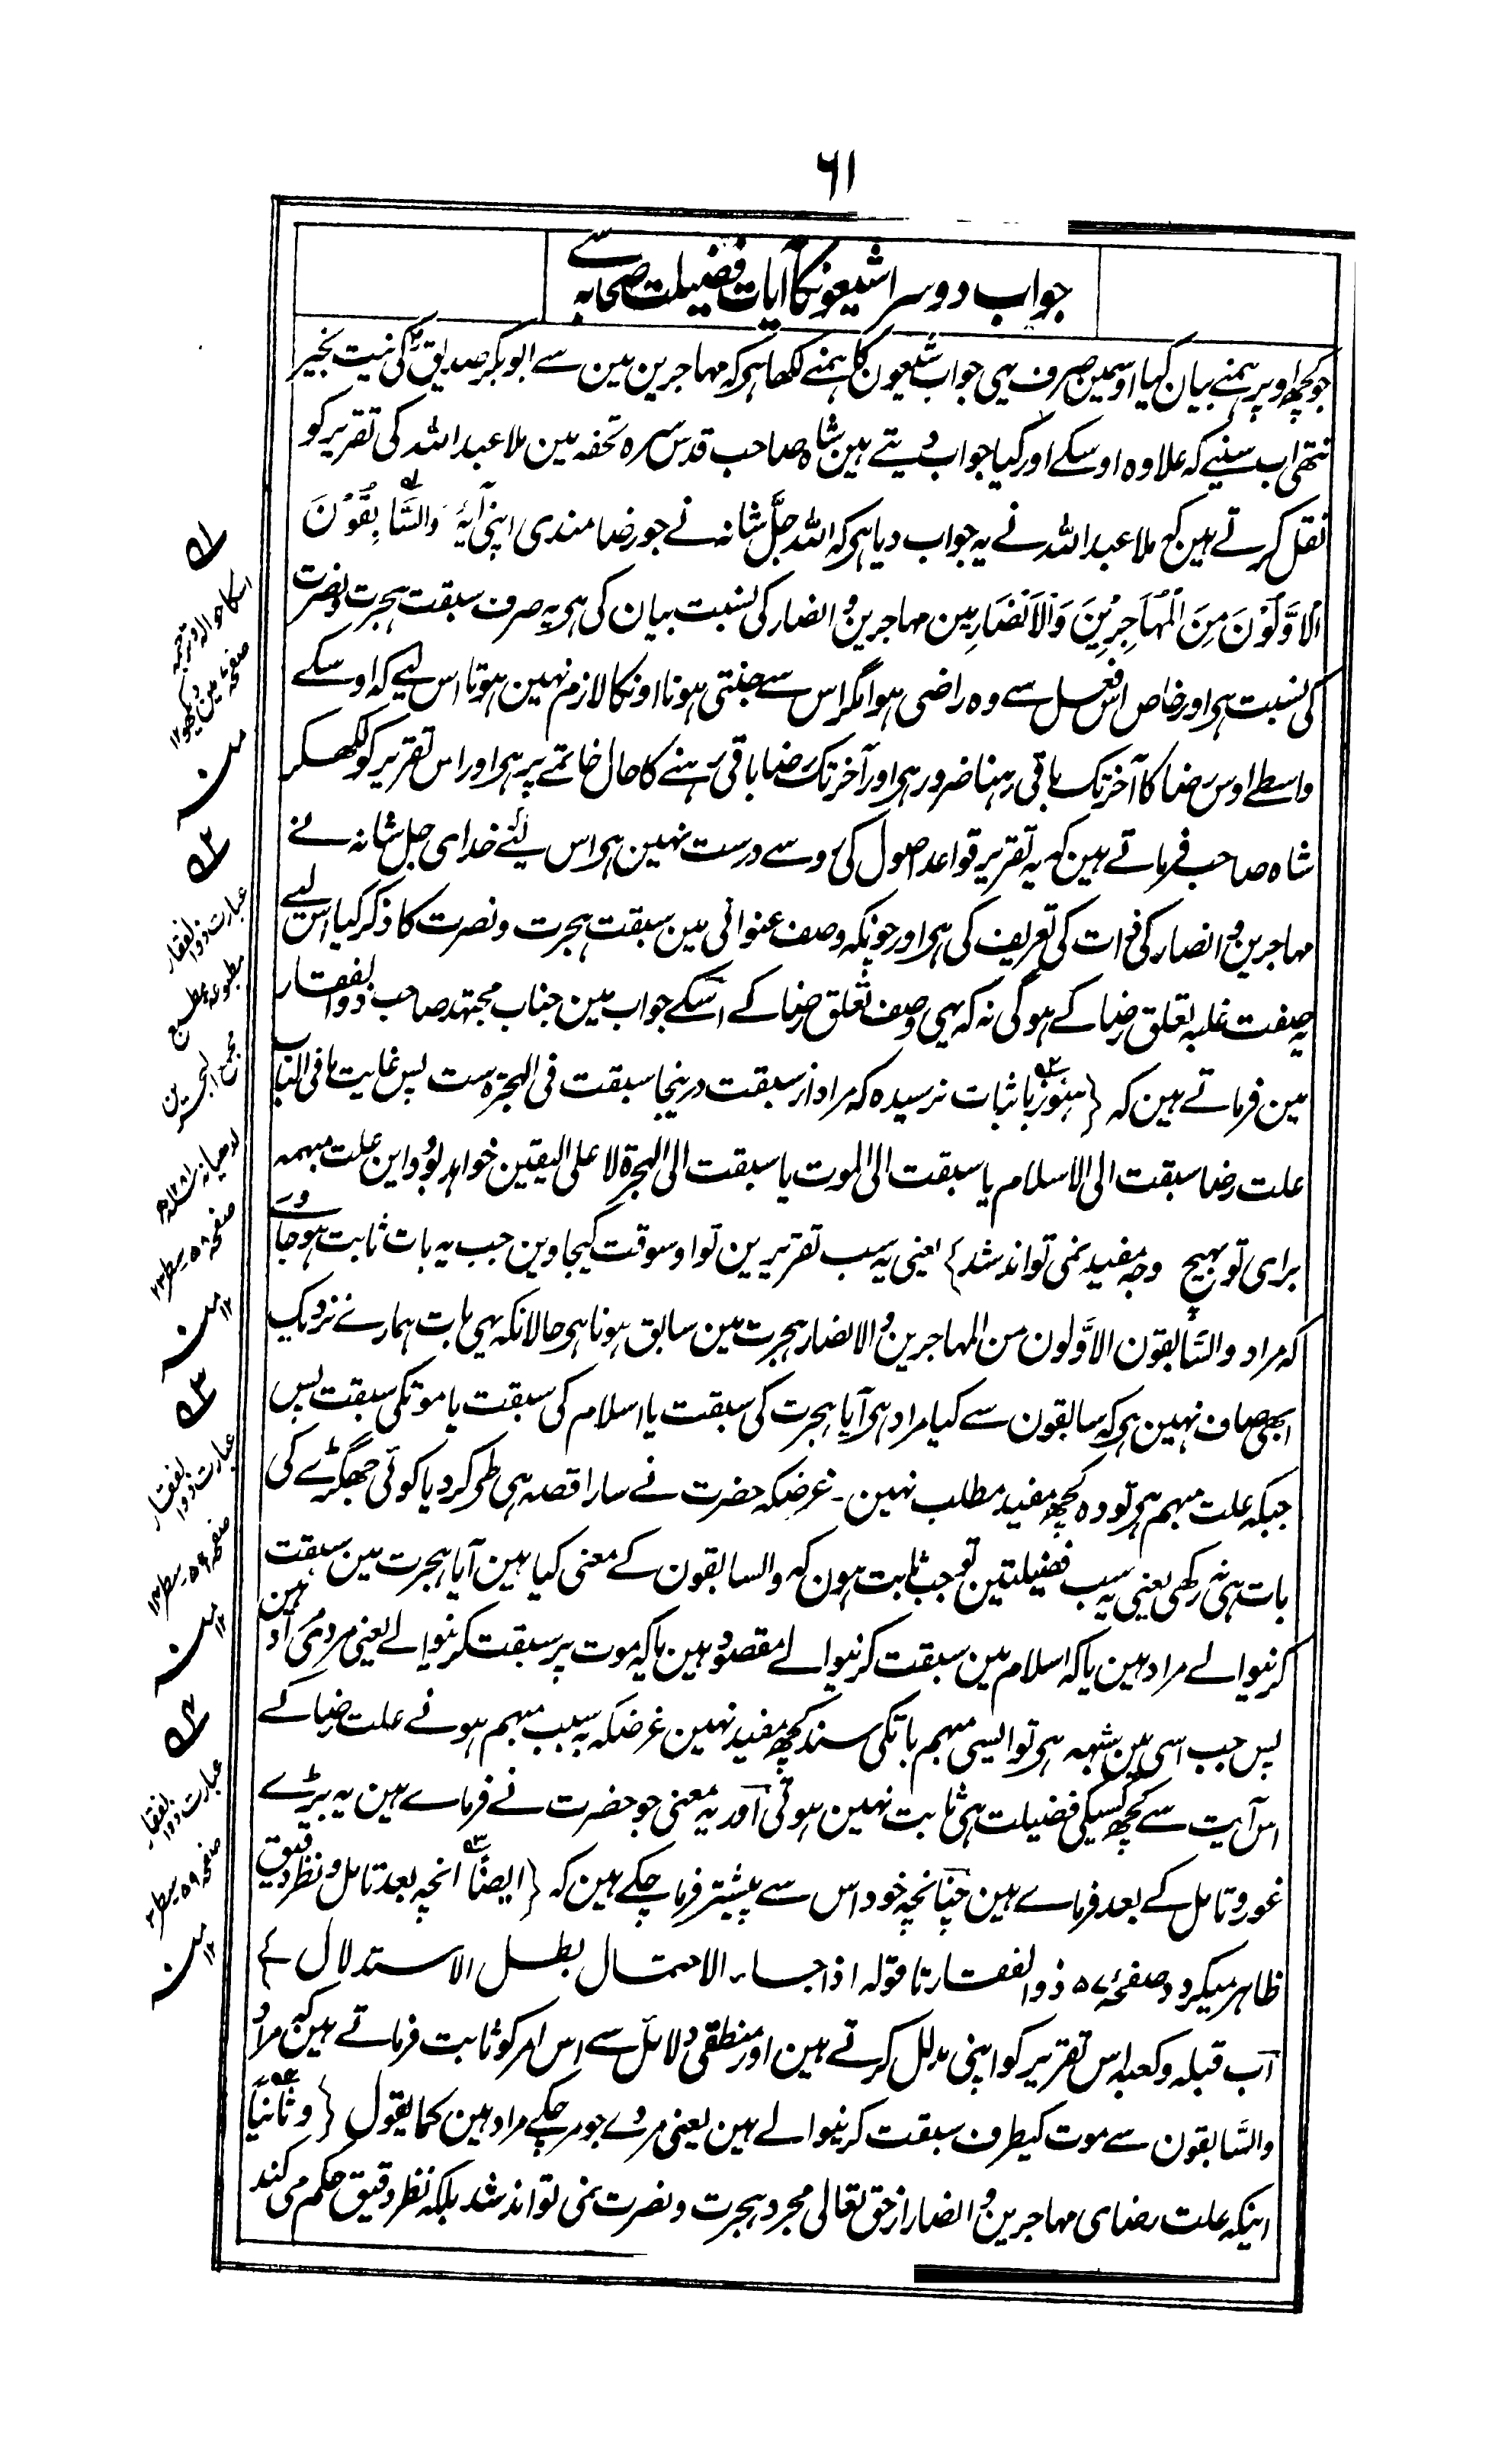 ۶۱
جواب دوسرا شیعونکا آیات فضیلت صحابہ سے
جو کچھ اوپر ہمنے بیان کیا اوسمین صرف یہی جواب شیعون کا ہمنے لکھا ہی کہ مہاجرین مین سے ابوبکر صدیق رض کی نیت بخیر
نتھی اب سنیے کہ علاوہ اوسکے اور کیا جواب دیتے ہین شاہ صاحب قدس سرہ تحفہ مین ملا عبد اللہ کی تقریر کو
نقل کرتے ہین کہ ملا عبد اللہ نے یہ جواب دیا ہی کہ اللہ جلَّ شانہ نے جو رضامندی اپنی آیۂ وَالسَّابِقُوْنَ
الْاَوَّلُوْنَ مِنَ الْمُہَاجِرِیْنَ وَالْاَنْصَارِ مین مہاجرین و انصار کی نسبت بیان کی ہی یہ صرف سبقت ہجرت و نصرت
کی نسبت ہی اور خاص اس فعل سے وہ راضی ہوا مگر اس سے جنتی ہونا اونکا لازم نہین ہوتا اس لیے کہ اوسکے
واسطے اوس رضا کا آخر تک باقی رہنا ضرور ہی اور آخر تک رضا باقی رہنے کا حال خاتمے پر ہی اور اس تقریر کو لکھکر
شاہ صاحب فرماتے ہین کہ یہ تقریر قواعد اصول کی رو سے درست نہین ہی اس لیئے خدای جل شانہ نے
مہاجرین و انصار کی ذات کی تعریف کی ہی اور چونکہ وصف عنوانی مین سبقت ہجرت و نصرت کا ذکر کیا اس لیے
یہ صفت غلبہ تعلق رضا کے ہوگی نہ کہ یہی وصف تعلق رضا کے اسکے جواب مین جناب مجتہد صاحب ذوالفقار
مین فرماتے ہین کہ {ہنوز باثبات نرسیدہ کہ مراد از سبقت درینجا سبقت فی الہجرۃ ست پس غایت مافی الباب
علت رضا سبقت الی الاسلام یا سبقت الی الموت یا سبقت الی الہجرۃ لا علی الیقین خواہد بود و این علت مبہمہ
برای تو بہیچ وجہ مفید نمی تواند شد} یعنی یہ سب تقریرین تو اوسوقت کیجاوین جب یہ بات ثابت ہو جاوے
کہ مراد والسَّابقون الاوَّلون من المہاجرین و الانصار ہجرت مین سابق ہونا ہی حالانکہ یہی بات ہمارے نزدیک
ابھی صاف نہین ہی کہ سابقون سے کیا مراد ہی آیا ہجرت کی سبقت یا اسلام کی سبقت یا موتکی سبقت پس
جبکہ علت مبہم ہی تو وہ کچھ مفید مطلب نہین ۔ غرضکہ حضرت نے سارا قصہ ہی طی کر دیا کوئی جھگڑے کی
بات ہی نہ رکھی یعنی یہ سب فضیلتین تو جب ثابت ہون کہ والسابقون کے معنی کیا ہین آیا ہجرت مین سبقت
کرنیوالے مراد ہین یا کہ اسلام مین سبقت کرنیوالے مقصود ہین یا کہ موت پر سبقت کرنیوالے یعنی مردے مراد ہین
پس جب اسی مین شبہہ ہی تو ایسی مبہم باتکی سند کچھ مفید نہین غرضکہ بہ سبب مبہم ہونے علت رضا کے
اس آیت سے کچھ کسیکی فضیلت ہی ثابت نہین ہوتی اور یہ معنی جو حضرت نے فرمائے ہین یہ بڑے
غور و تامل کے بعد فرمائے ہین چنانچہ خود اس سے پیشتر فرما چکے ہین کہ {ایضًا انچہ بعد تامل و نظر دقیق
ظاہر میگردد صفحۂ ۵۷ ذوالفقار تا قولہ اذا جاء الاحتمال بطل الاستدلال}
اب قبلہ و کعبہ اس تقریر کو اپنی مدلل کرتے ہین اور منطقی دلائل سے اس امر کو ثابت فرماتے ہین کہ مراد
والسَّابقون سے موت کیطرف سبقت کرنیوالے ہین یعنی مردے جو مر چکے مراد ہین کما یقول {و ثانیًا
اینکہ علت رضای مہاجرین و انصار از حق تعالی مجرد ہجرت و نصرت نمی تواند شد بلکہ نظر دقیق حکم می کند
ا؎
اسکا حوالہ و ترجمہ
صفحہ مین دیکھو ۱۲
منہ
۲؎
عبارت ذوالفقار
مطبوعہ مطبع
مجمع البحرین
لدھیانہ
صفحہ ۵۸ سطر ۲۳
۱۲ منہ
۳؎
عبارت ذوالفقار
صفحہ ۵۷ سطر
۱۲ منہ
۴؎
عبارت ذوالفقار
صفحہ ۵۹ سطر
۱۲ منہ